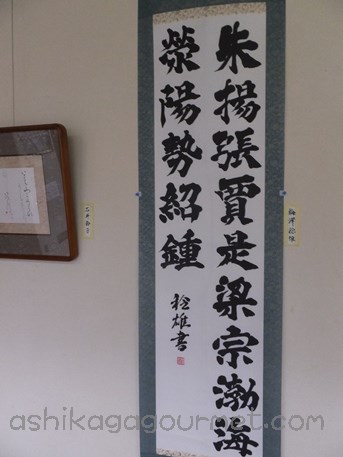 朱揚張賈是梁宗渤海
滎陽勢紹鍾
稔雄書
ashikagagourmet.com